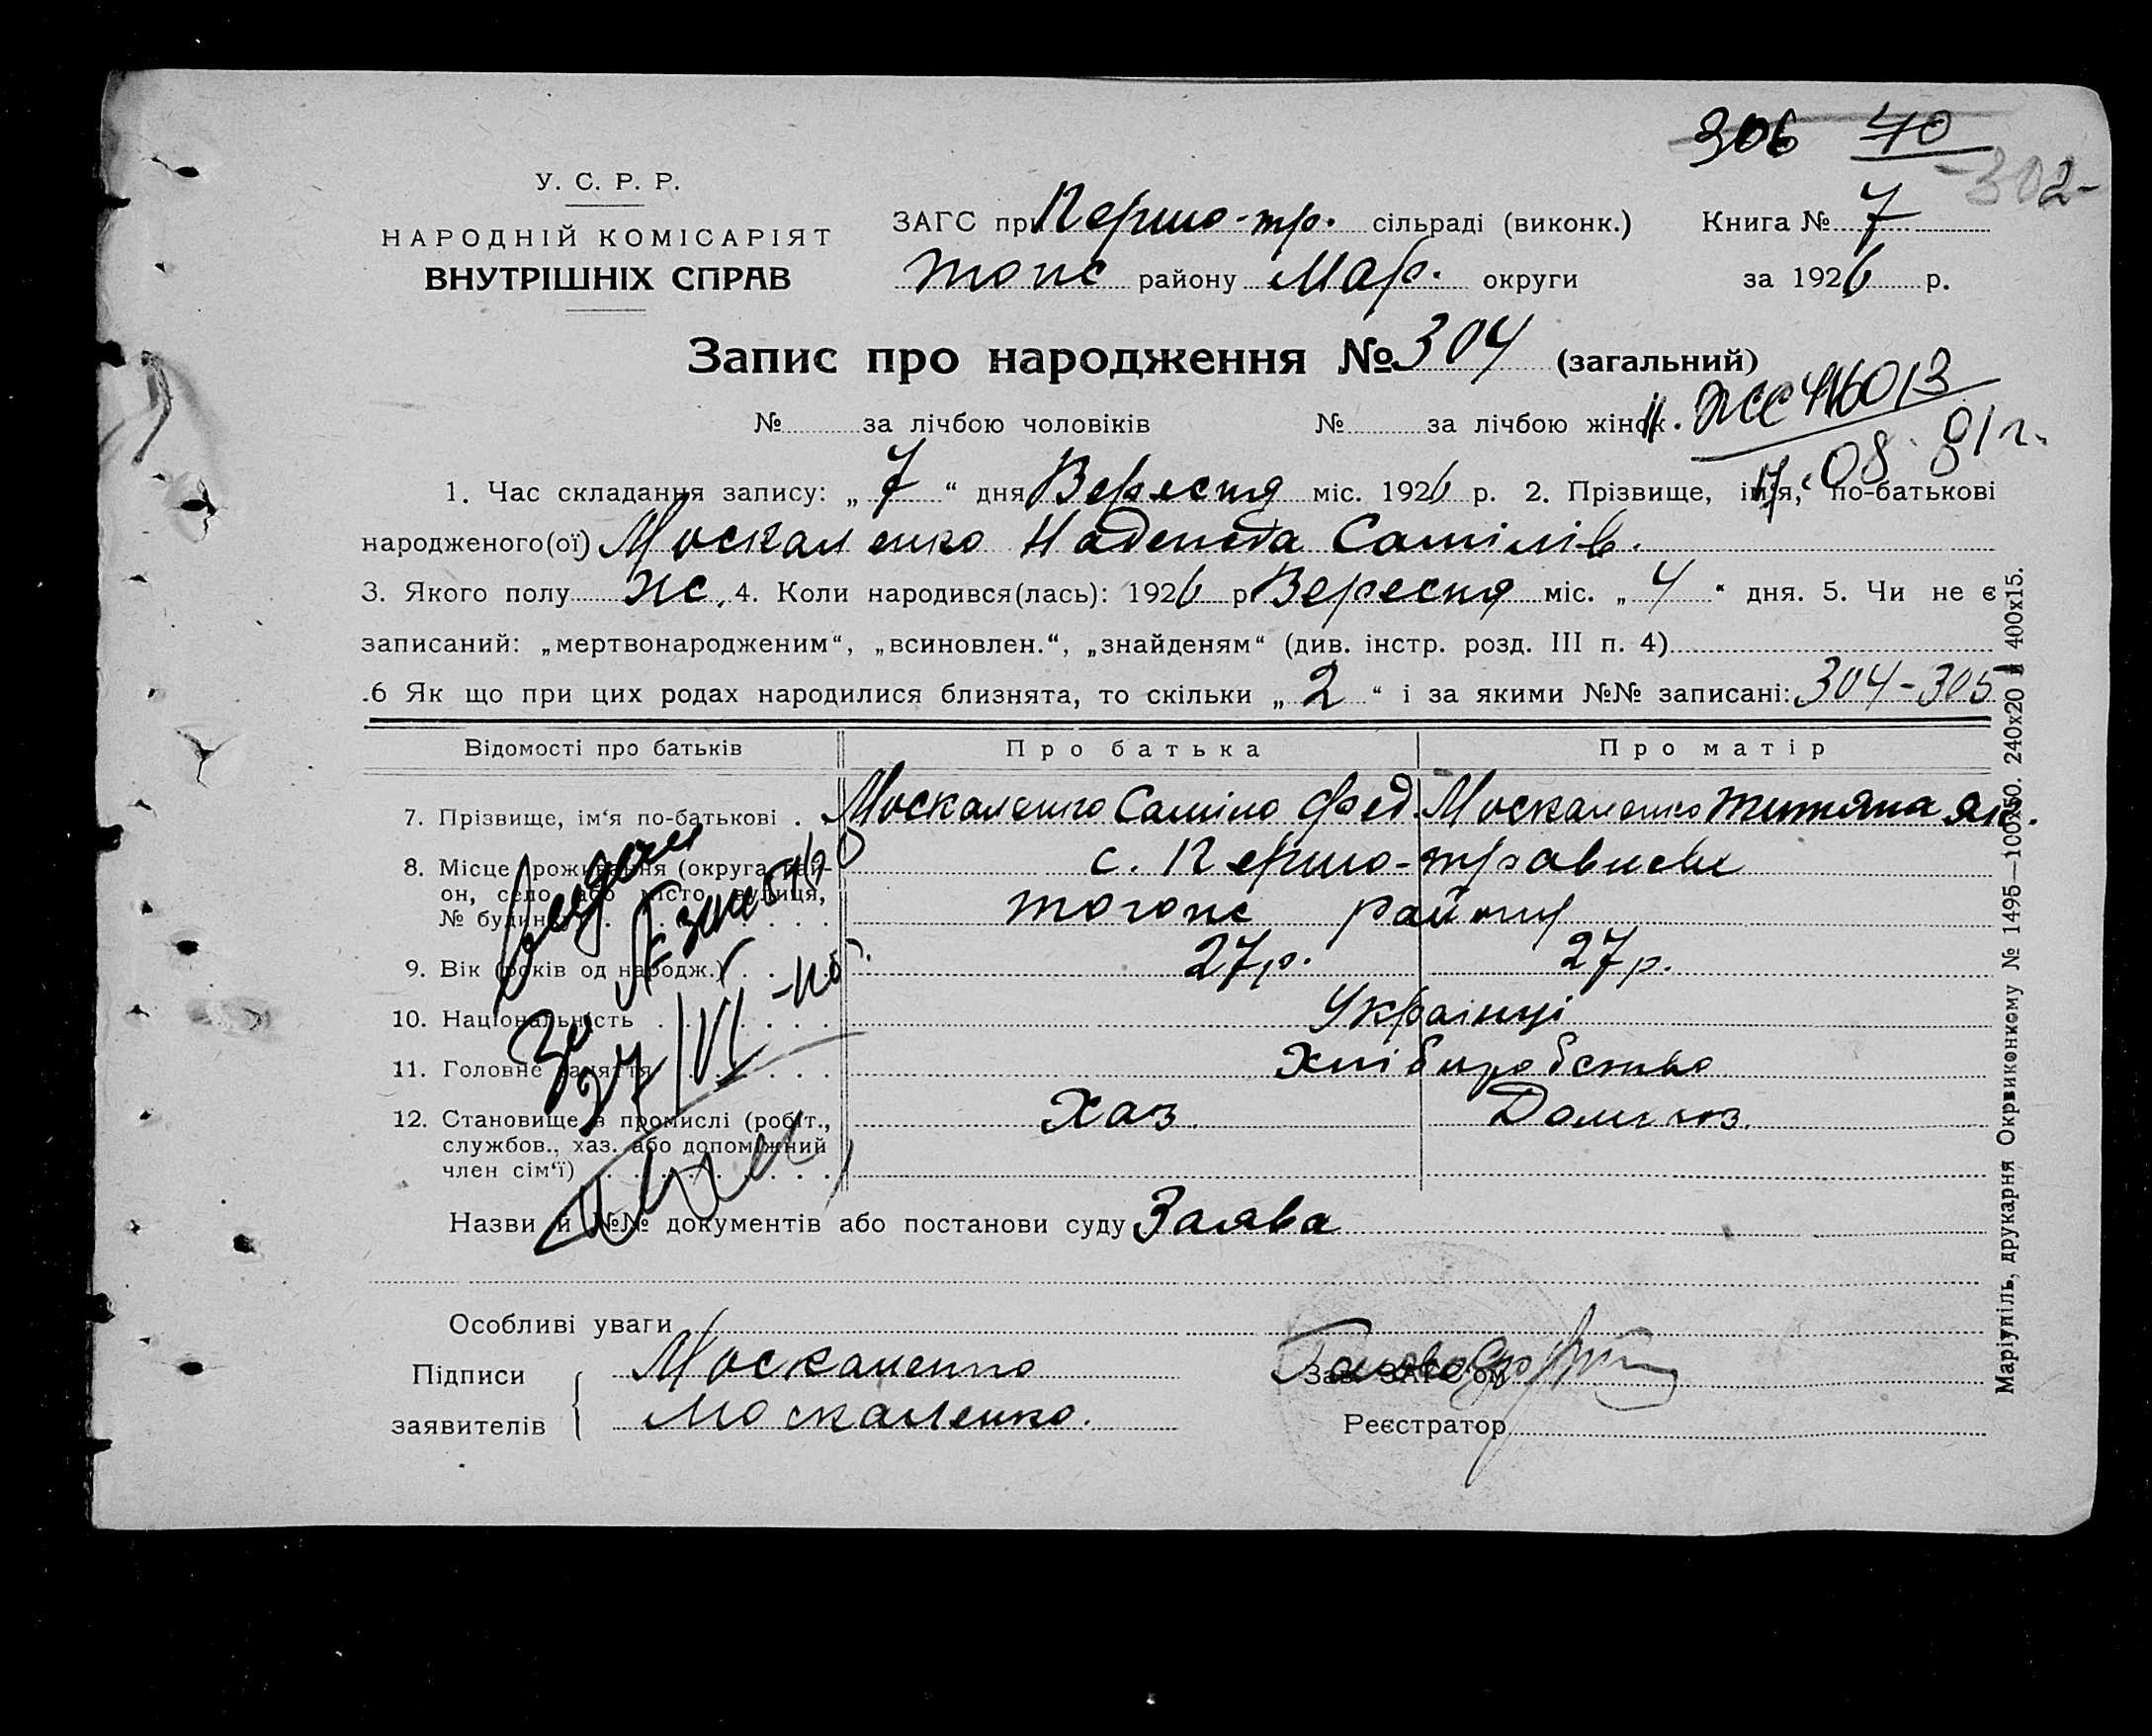 306 40
-302-
У. С. Р. Р.
НАРОДНІЙ КОМІСАРІЯТ
ВНУТРІШНІХ СПРАВ
ЗАГС при Першо-тр. сільраді (виконк.) Книга № 7
топс району Мар. округи за 1926 р.
Запис про народження № 304 (загальний)
№ за лічбою чоловіків № за лічбою жінок.
08. 81 г.
1. Час складання запису: „ 7 “ дня Вересня міс. 1926 р. 2. Прізвище, ім'я, по-батькові
народженого(ої) Москаленко Надежда Самілів.
3. Якого полу ж. 4. Коли народився(лась): 1926 р Вересня міс. „ 4 “ дня. 5. Чи не є
записаний: „мертвонародженим“, „всиновлен.“, „знайденям“ (див. інстр. розд. III п. 4)
.6 Як що при цих родах народилися близнята, то скільки „ 2 “ і за якими №№ записані: 304-305
Відомості про батьків Про батька Про матір
7. Прізвище, ім'я по-батькові . Москаленко Саміло Фед. Москаленко
8. Місце проживання (округа, рай-
он, село або місто, вулиця,
№ будинку) . с. Першо-травневе
району
9. Вік (років од народж.) 27 р. 27 р.
10. Національність Українці
11. Головне заняття Хліборобство
12. Становище в промислі (робіт.,
службов., хаз. або допоміжний
член сім'ї) Хаз. Дом. хоз.
Назви й №№ документів або постанови суду Заява
Особливі уваги
Підписи Москаленко Зав. ЗАГС'ом
заявителів Москаленко. Реєстратор
Маріупіль, друкарня Окрвиконкому № 1495—100х50. 240х20 и 400х15.